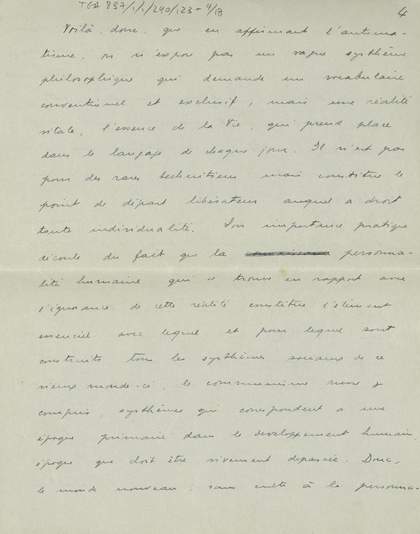 TGA 837/1/1/240/123-4/13
4
Voilà, donc, que en affirmant l'automa-
tisme, on n'expose pas un vague système
philosophique qui demande un vocabulaire
conventionnel et exclusif, mais une réalité
vitale, l'essence de la Vie, qui prend place
dans le langage de chaque jour. Il n'est pas
pour des rares mais constitue le
point de départ libérateur auquel a droit
toute individualité. Son importance pratique
découle du fait que la personna-
lité humaine qui se trouve en rapport avec
l'ignorance de cette réalité constitue l'élément
essenciel avec lequel et pour lequel sont
construits tous les systèmes sociaux de ce
vieux monde-ci, le communisme russe y
compris, systèmes que correspondent a une
époque primaire dans le développement humain
époque que doit être vivement depassée. Donc,
le monde nouveau, sans culte à la personna-